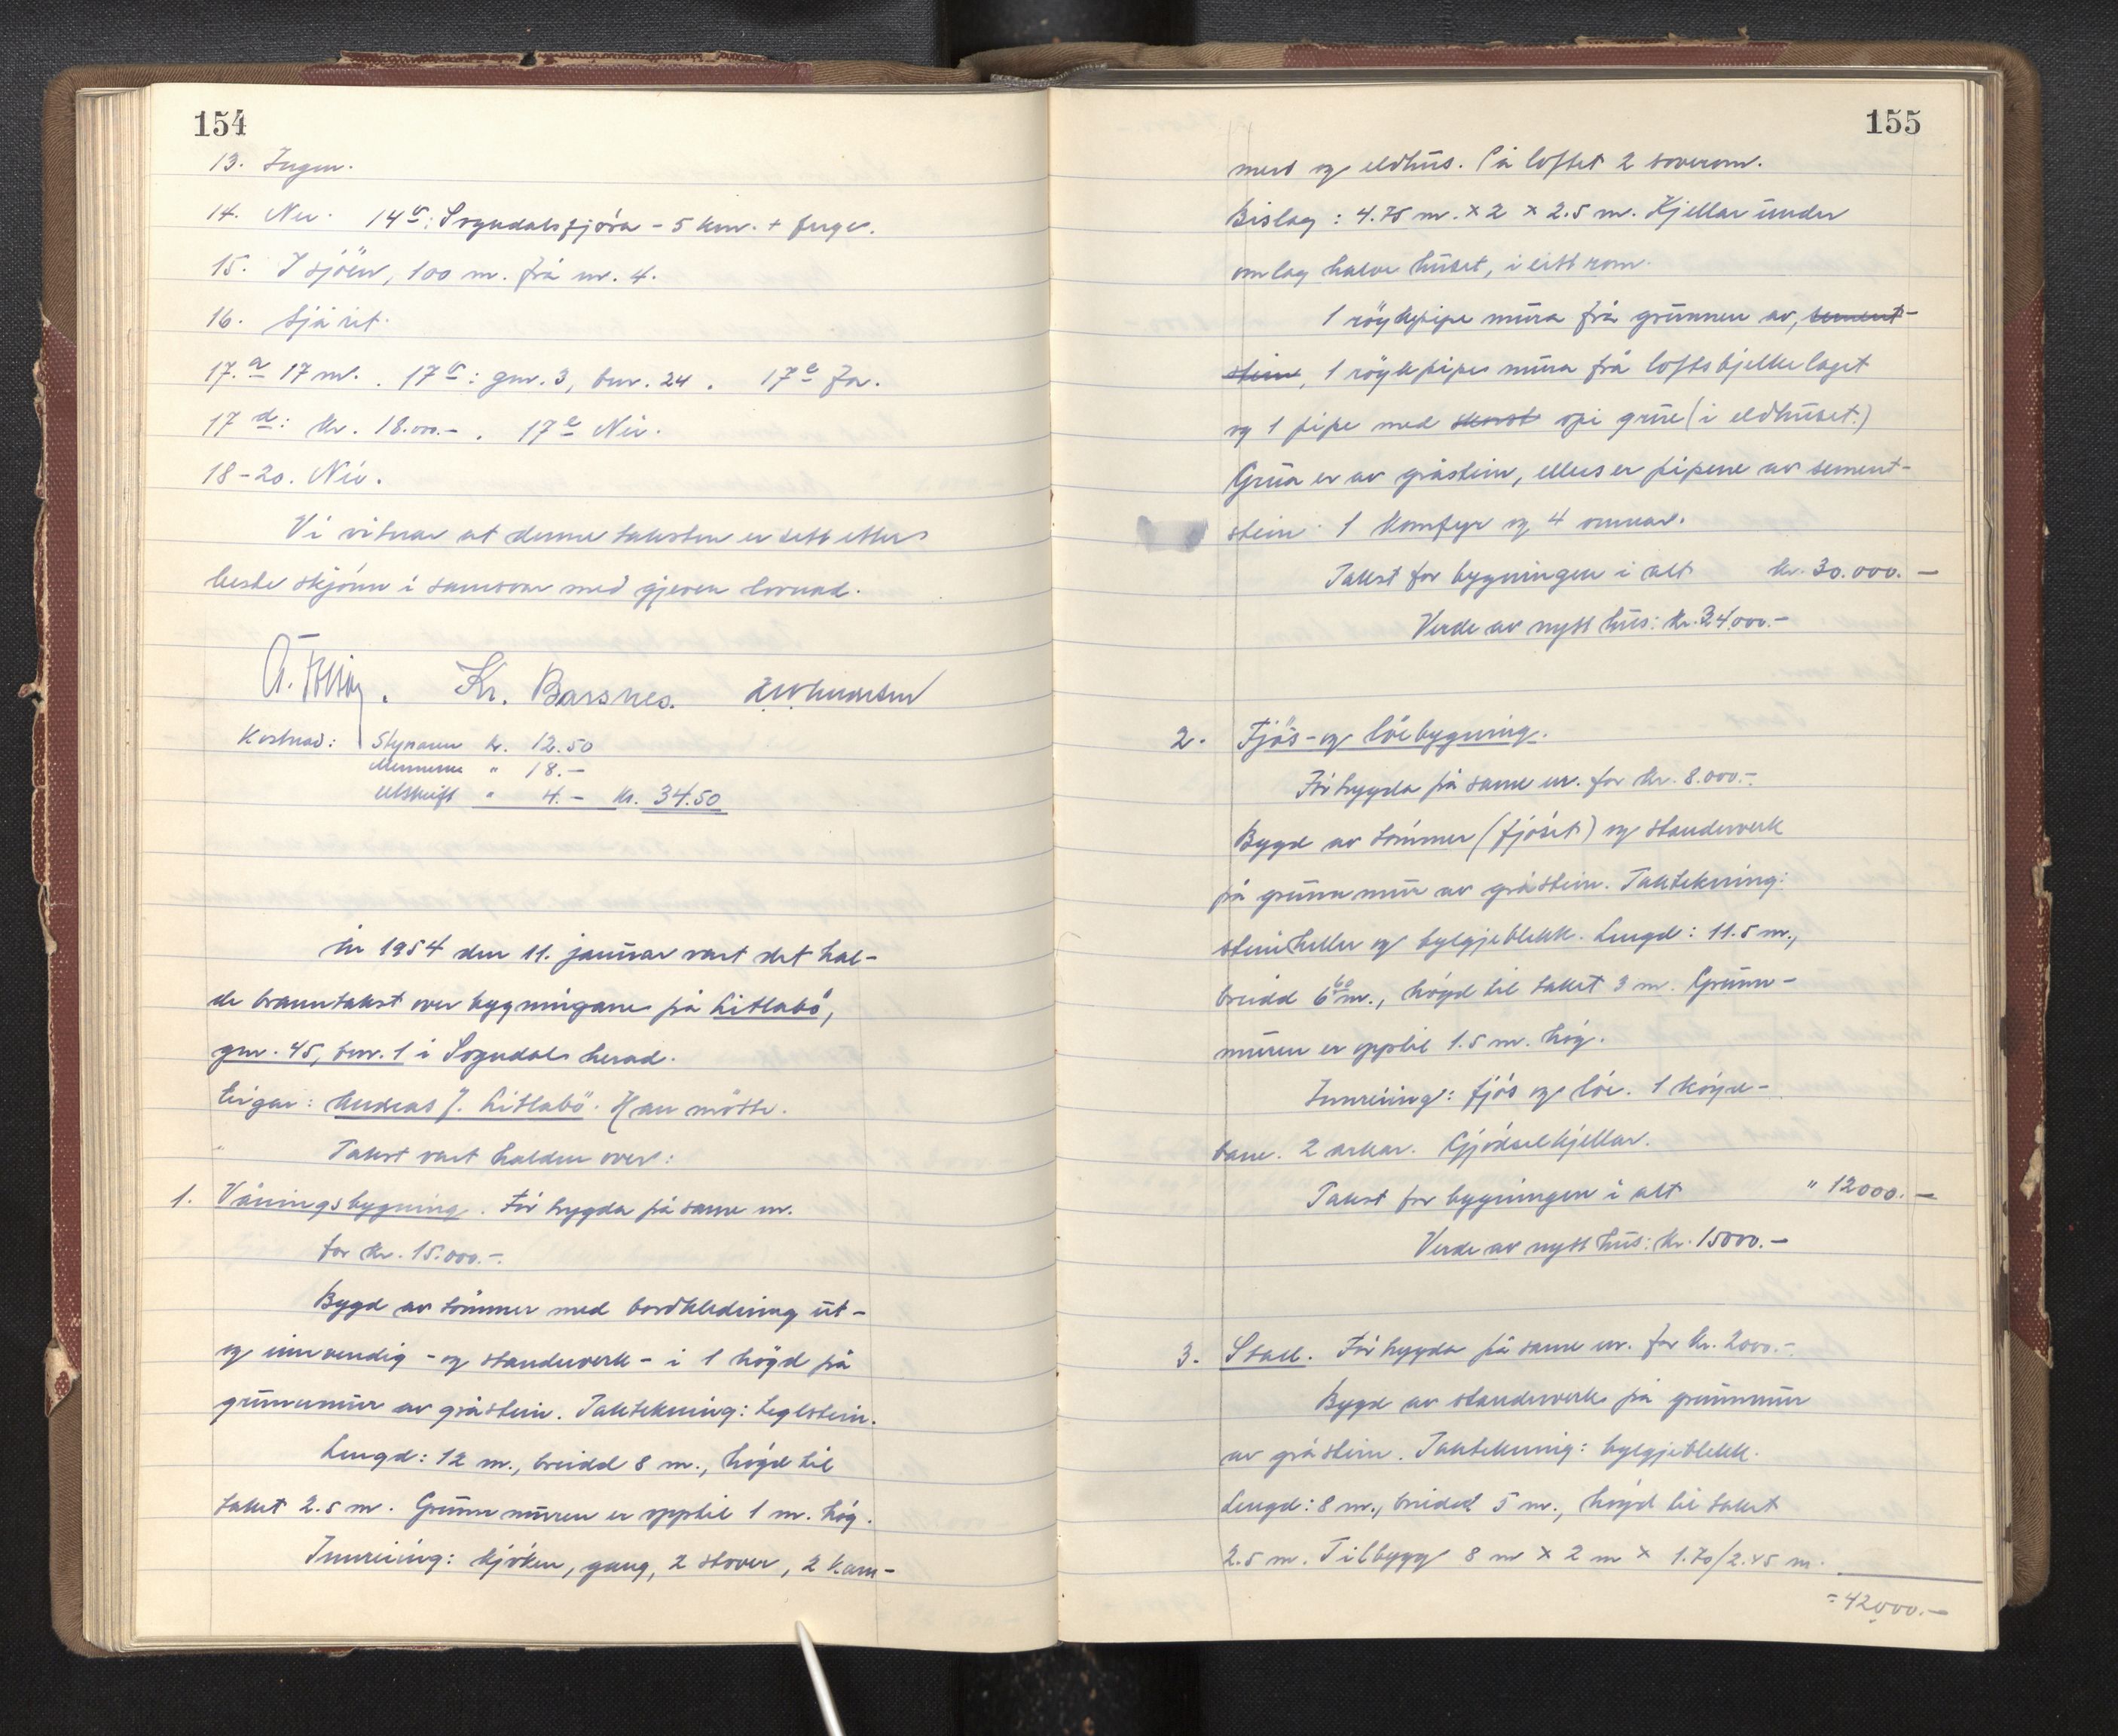 154
13. Ingen.
14. Nei. 14b: Sogndalsfjøra - 5 km. + ferge.
15. I sjöen, 100 m. frå nr. 4.
16. Sjå rit.
17.a 17 m². 17b: gnr. 3, bnr. 24. 17c Ja.
17 d: kr. 18.000.-. 17e Nei.
18-20. Nei.
Vi vitnar at denne taksten er sett etter
beste skjönn i samsvar med gjeven lovnad.
Kr. Barsnes.
Kostnad: Styraren kr. 12.50
Mennene " 18.-
Utskrift " 4.- kr. 34.50
År 1954 den 11. januar vart det hal-
de branntakst over bygningane på Litlabö,
gnr. 45, bnr. 1 i Sogndal herad.
Eigar: Andreas J. Litlabö. Han mötte.
Takst vart halden over:
1. Våningsbygning. Før trygda på same nr.
for kr. 15.000.-.
Bygd av tömmer med bordkledning ut-
og innvendig - og standerverk - i 1 högd på
grunnmur av gråstein. Taktekning: teglstein.
Lengd: 12 m., breidd 8 m., högd til
taket 2.5 m. Grunnmuren er opptil 1 m. hög.
Innreiing: kjöken, gang, 2 stover, 2 kam-
155
mers og eldhus. På loftet 2 soverom.
Bislag: 4.75 m. x 2 x 2.5 m. Kjellar under
om lag halve huset, i eitt rom.
1 röykpipe mura frå grunnen av, sement-
stein, 1 röykpipe mura frå loftsbjelkelaget
og 1 pipe med skorst opi grue (i eldhuset.)
Grua er av gråstein, elles er pipene av sement-
stein. 1 komfyr og 4 omnar.
Takst for bygningen i alt kr. 30.000.-
Verde av nytt hus: kr. 34.000.-
2. Fjös- og löebygning.
Før trygda på same nr. for kr. 8.000.-.
Bygd av tömmer (fjöset) og standerverk
på grunnmur av gråstein. Taktekning:
steinheller og bylgjeblekk. Lengd: 11.5 m.,
breidd 6.60 m., högd til taket 3 m. Grunn-
muren er opptil 1.5 m. hög.
Innreiing: fjös og löe. 1 köyre-
bane. 2 arkar. Gjödselkjellar.
Takst for bygningen i alt " 12000.-
Verde av nytt hus: kr. 15000.-
3. Stall. Før trygda på same nr. for kr. 2000.-.
Bygd av standerverk på grunnmur
av gråstein. Taktekning: bylgjeblekk.
Lengd: 8 m., breidd 5 m., högd til taket
2.5 m. Tilbygg 8 m x 2 m x 1.70/2.45 m.
= 42000.-